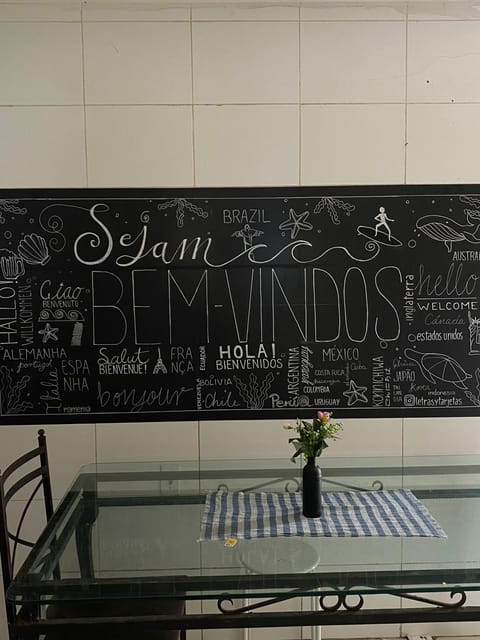 BRAZIL
Sejam
BEM-VINDOS
HALLO!
WILLKOMMEN
Ciao
BENVENUTO
ALEMANHA
portugal
ESPA
NHA
Italia
romenia
Salut
BIENVENUE!
FRA
NÇA
bonjour
Ecuador
HOLA!
BIENVENIDOS
BOLIVIA
Chile
Peru
ARGENTINA
MÉXICO
COSTA RICA
Cuba
COLOMBIA
URUGUAY
KONNICHIWA
inglaterra
AUSTRA
hello
WELCOME
Canada
estados unidos
JAPÃO
Korea
TAI
LAN
DIA
indonesia
@letrasytarjetas